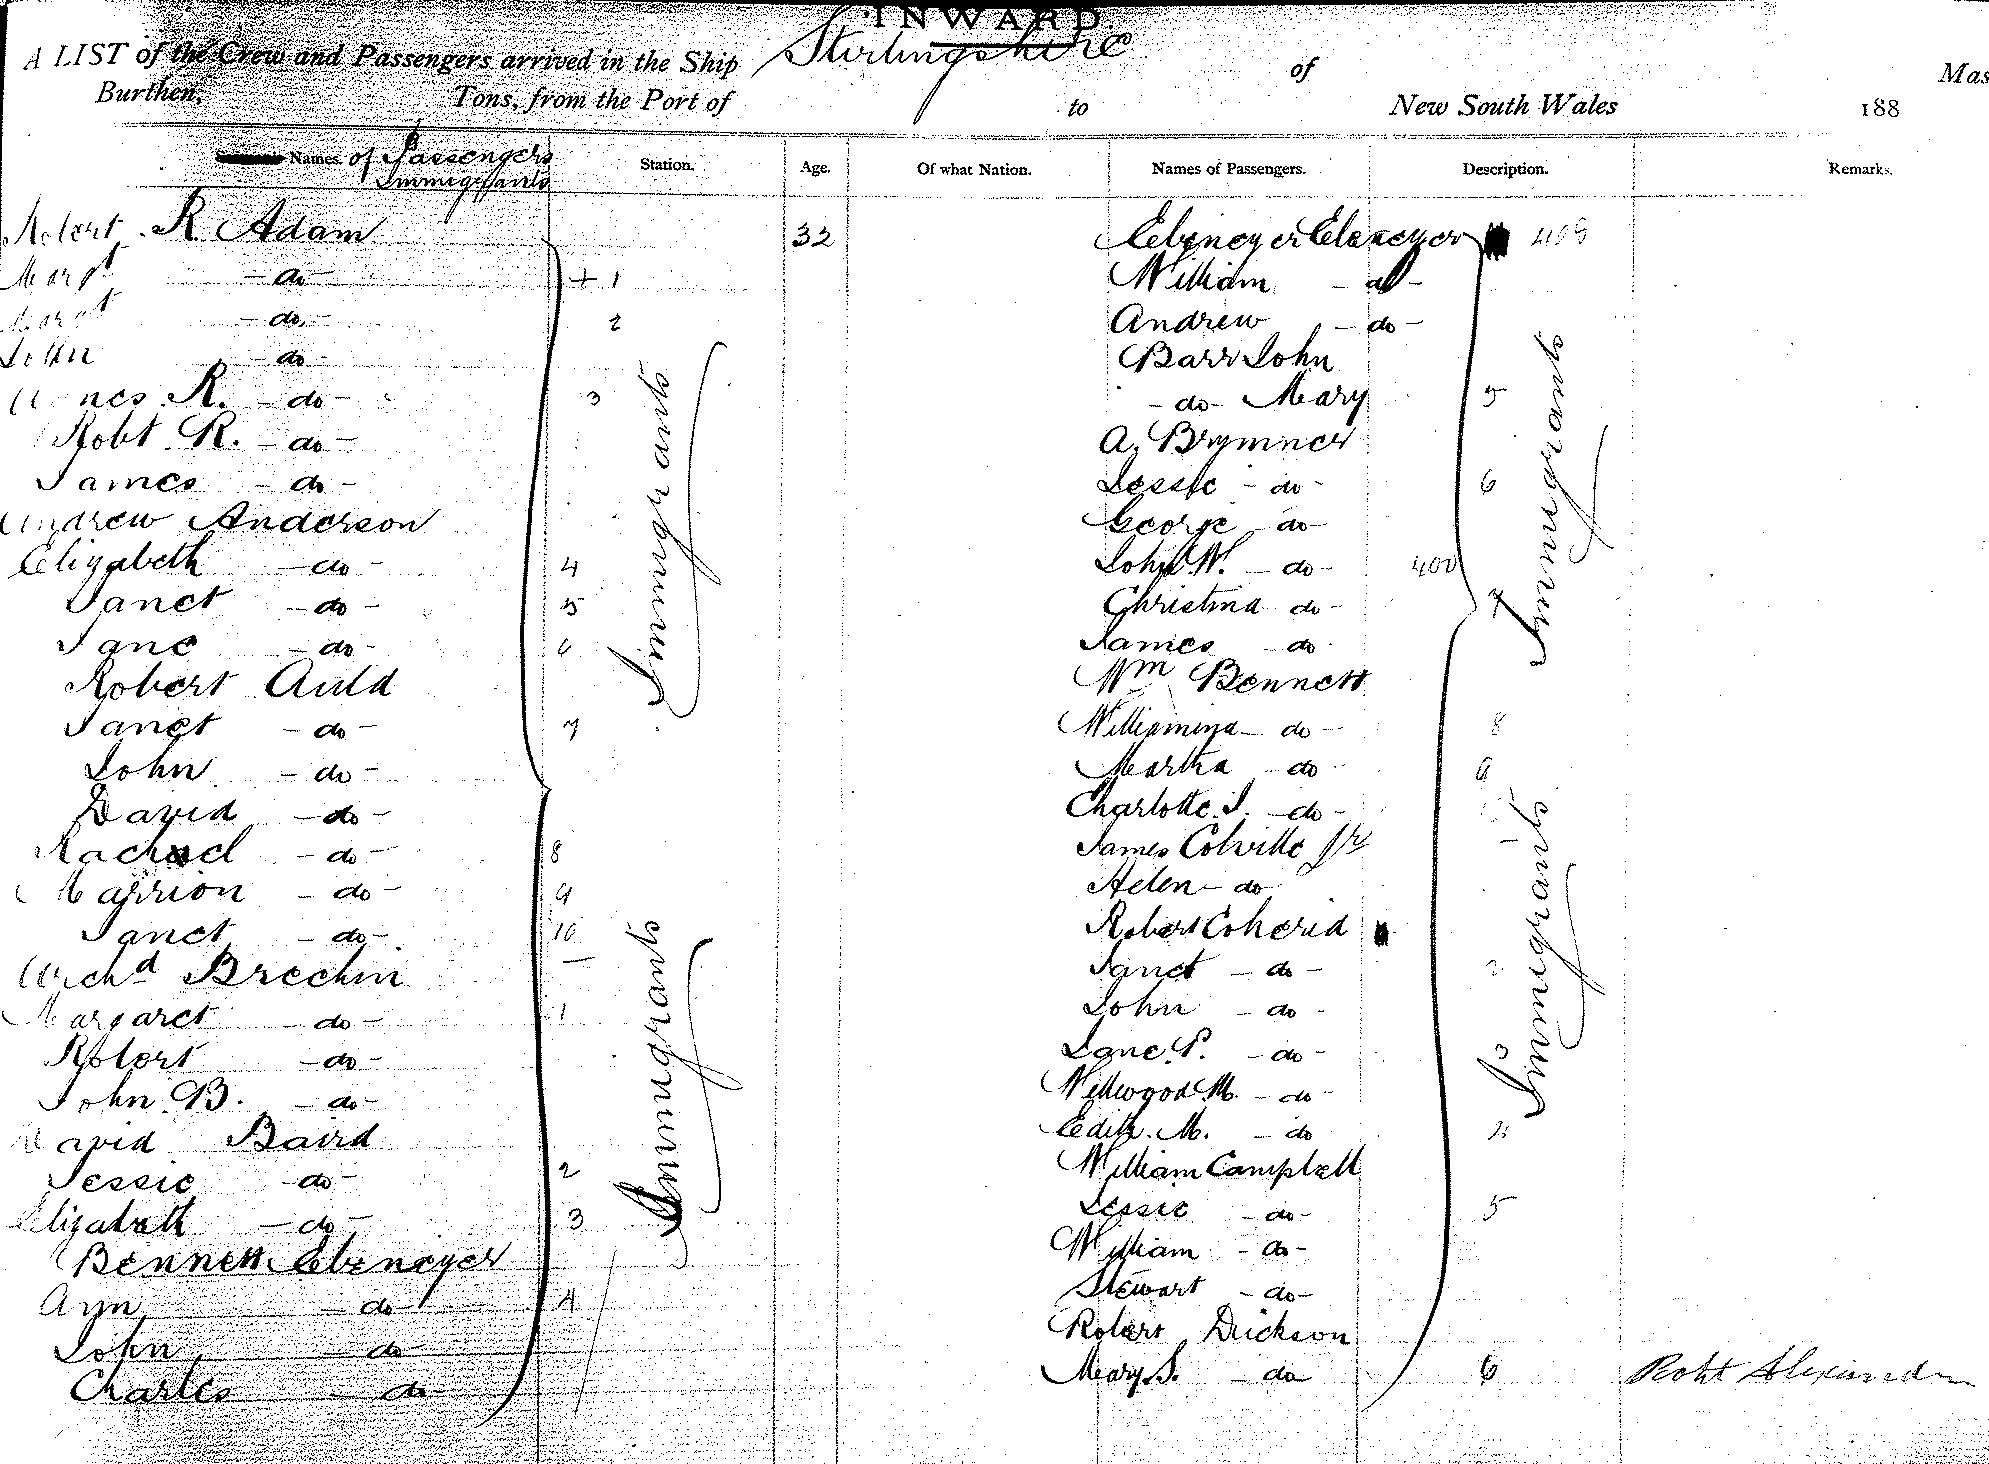 INWARD.
A LIST of the Crew and Passengers arrived in the Ship Stirlingshire of Mas
Burthen, Tons, from the Port of to New South Wales 188
Names of Passengers Immigrants
Station.
Age.
Of what Nation.
Names of Passengers.
Description.
Remarks.
Robert R. Adam 32
Margt - do - + 1
Margt - do - 2
John - do -
Agnes R. - do - 3
Robt R. - do -
James - do -
Andrew Anderson
Elizabeth - do - 4
Janet - do - 5
Jane - do - 6
Robert Auld
Janet - do - 7
John - do -
David - do -
Rachael - do - 8
Marrion - do - 9
Janet - do - 10
Archd Brechin
Margaret - do - 1
Robert - do -
John B. - do -
David Baird
Jessie - do - 2
Elizabeth - do - 3
Bennett Ebenezer
Ann - do - 4
John - do
Charles - do -
Immigrants
Immigrants
Ebenezer Ebenezer
William - do -
Andrew - do -
Barr John
- do - Mary 5
A. Brymner
Jessie - do - 6
George - do -
John W. - do - 400
Christina do - 7
James do
Wm Bennett
Williamina - do - 8
Martha - do 9
Charlotte J. - do -
James Colville Jr
Helen - do
Robert
Janet - do - 2
John - do -
Jane P. - do - 3
Wellwood M. - do -
Edith. M. - do 4
William Campbell
Jessie - do - 5
William - do -
Stewart - do -
Robert Dickson
Mary S. - do 6
Immigrants
Immigrants
Robt Alexander